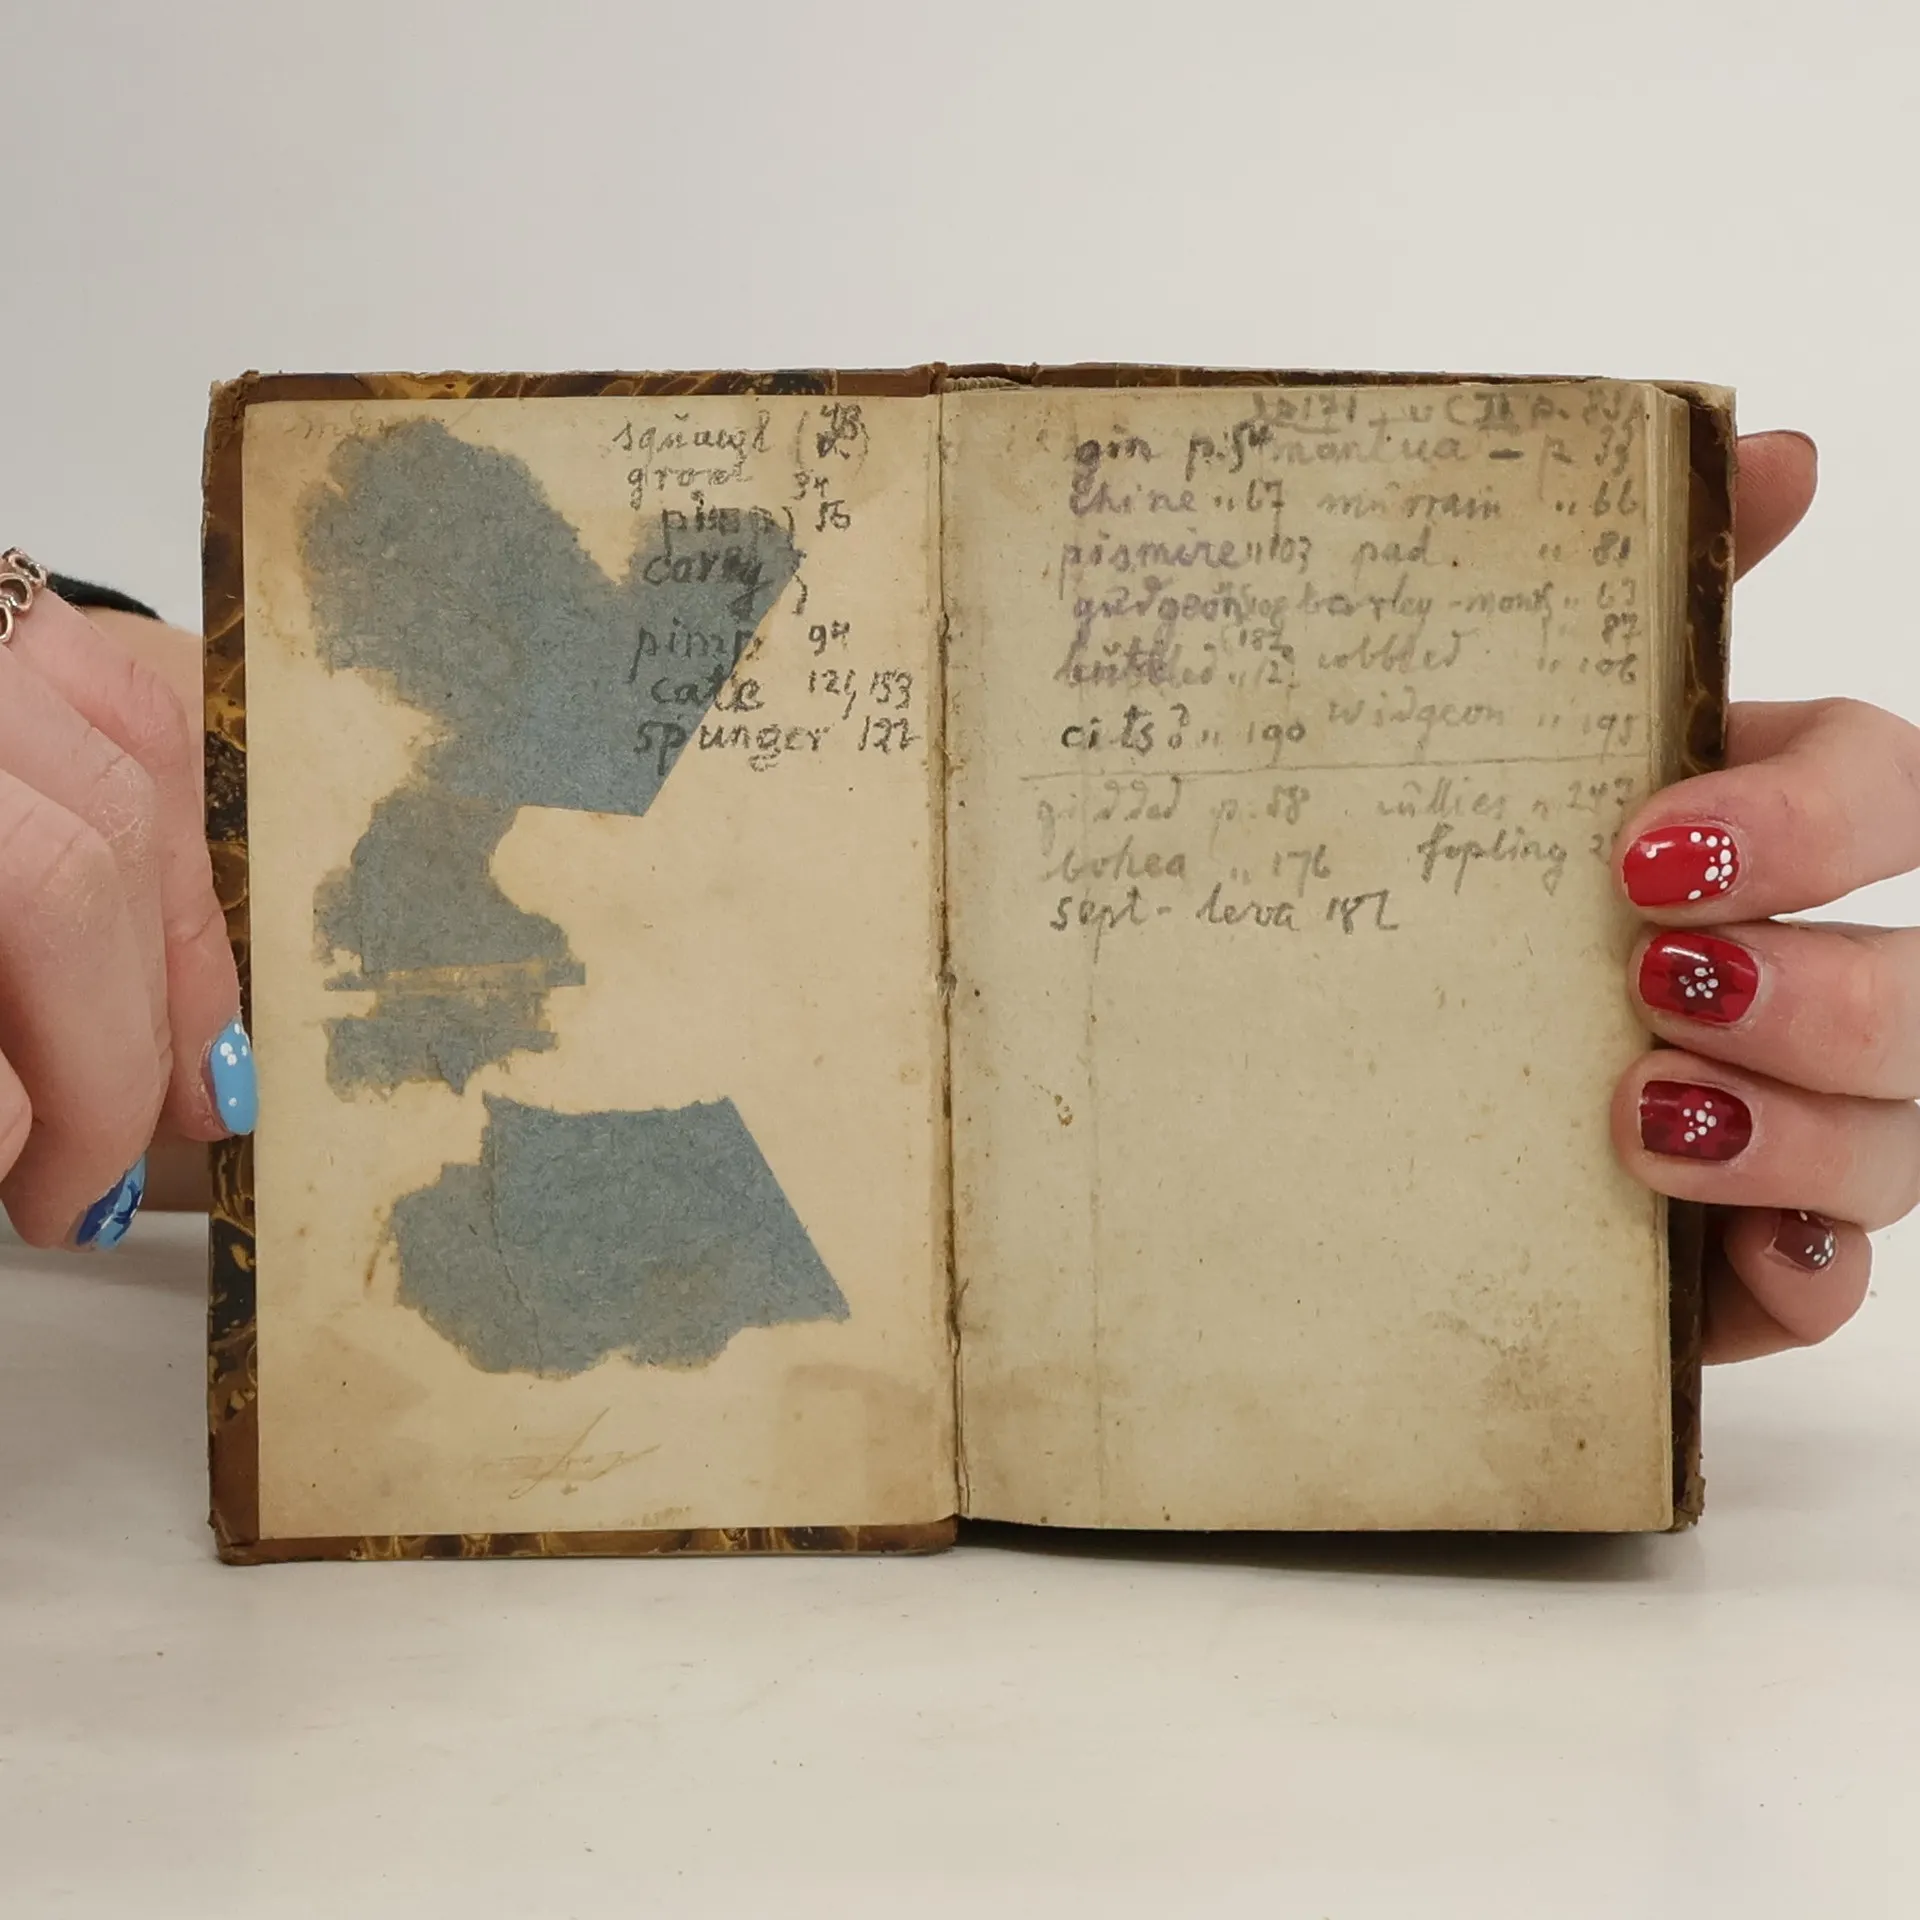 squawl (48
groat 34
pimp) 56
carey )
pimp 94
cate 121, 153
spunger 122
p. 171 p. 83
gin p. 54 mantua — p 33
chine " 67 murrain " 66
pismire " 103 pad " 81
gudgeon barley-mow " 63
187 87
" 12 cobbled " 106
cits? " 190 widgeon " 195
gidded p. 58 cullies " 247
bohea " 176 fopling
sept-leva 187